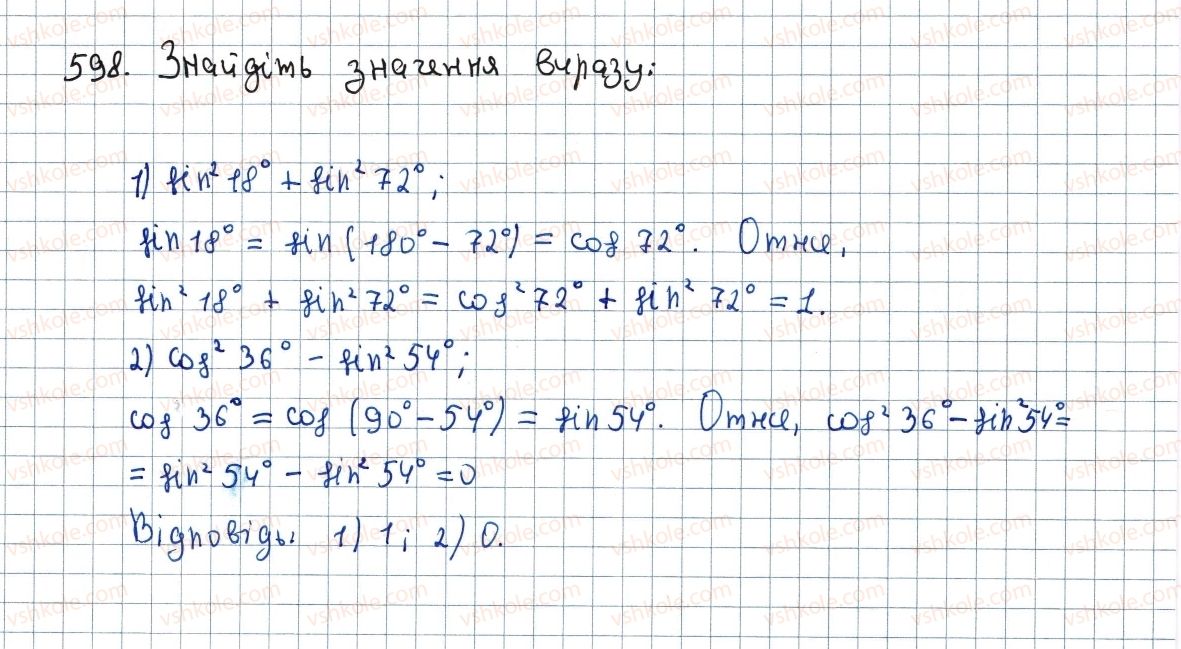 598. Знайдіть значення виразу:
1) sin² 18° + sin² 72°;
sin 18° = sin (180° - 72°) = cos 72°. Отже,
sin² 18° + sin² 72° = cos² 72° + sin² 72° = 1.
2) cos² 36° - sin² 54°;
cos 36° = cos (90° - 54°) = sin 54°. Отже, cos² 36° - sin² 54° =
= sin² 54° - sin² 54° = 0
Відповідь: 1) 1; 2) 0.